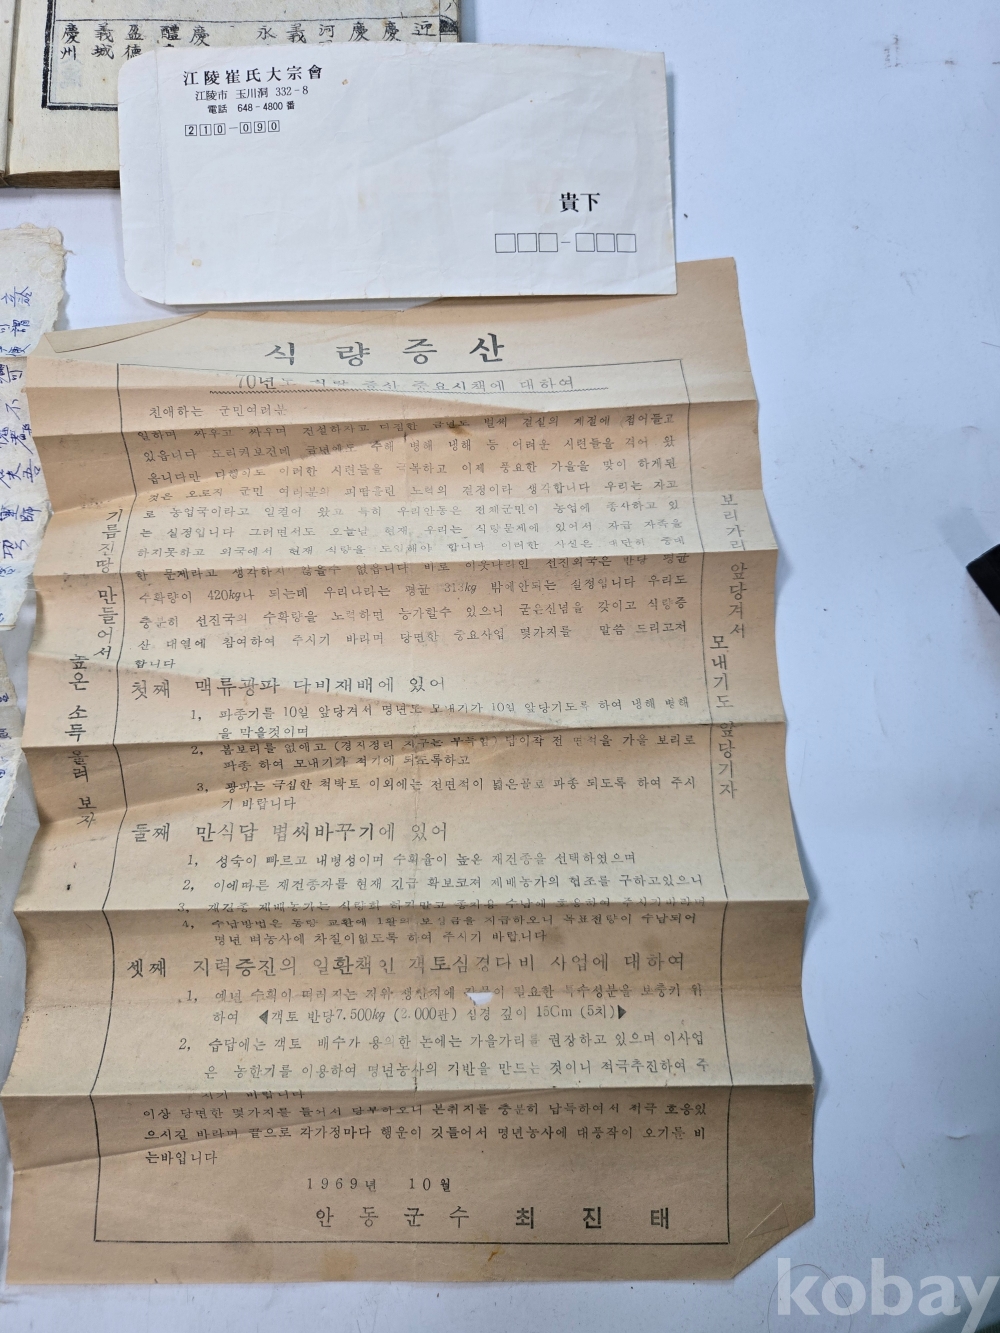 迎
慶
慶
河
義
永
慶
醴
盈德
義城
慶州
江陵崔氏大宗會
江陵市 玉川洞 332-8
電話 648-4800番
210-090
貴下
식량증산
70년도 식량 증산 중요시책에 대하여
친애하는 군민여러분
일하며 싸우고 싸우며 건설하자고 다짐한 금년도 벌써 결실의 계절에 접어들고
있읍니다 도리켜보건데 금년에도 수해 병해 냉해 등 어려운 시련들을 격어 왔
읍니다만 다행이도 이러한 시련들을 극복하고 이제 풍요한 가을을 맞이 하게된
것은 오로지 군민 여러분의 피땀흘린 노력의 결정이라 생각합니다 우리는 자고
로 농업국이라고 일컬어 왔고 특히 우리안동은 전체군민이 농업에 종사하고 있
는 실정입니다 그러면서도 오늘날 현재 우리는 식량문제에 있어서 자급 자족을
하지못하고 외국에서 현재 식량을 도입해야 합니다 이러한 사실은 대단히 중대
한 문제라고 생각하지 않을수 없읍니다 바로 이웃나라인 선진외국은 반당 평균
수확량이 420kg나 되는데 우리나라는 평균 313kg 밖에안되는 실정입니다 우리도
충분히 선진국의 수확량을 노력하면 능가할수 있으니 굳은신념을 갖이고 식량증
산 대열에 참여하여 주시기 바라며 당면한 중요사업 몇가지를 말씀 드리고저
합니다
첫째 맥류광파 다비재배에 있어
1, 파종기를 10일 앞당겨서 명년도 모내기가 10일 앞당기도록 하여 냉해 병해
을 막을것이며
2, 봄보리를 없에고 (경지정리 지구는 부득함) 답이작 전 면적을 가을 보리로
파종 하여 모내기가 적기에 되도록하고
3, 광파는 극심한 척박토 이외에는 전면적이 넓은골로 파종 되도록 하여 주시
기 바랍니다
둘째 만식답 볍씨바꾸기에 있어
1, 성숙이 빠르고 내병성이며 수확율이 높은 재건종을 선택하였으며
2, 이에따른 재건종자를 현재 긴급 확보코저 재배농가의 협조를 구하고있으니
3, 재건종 재배농가는 식량화 하지말고 종자용 수납에 호응하여 주시기바라며
4, 수납방법은 동량 교환에 1할의 보상금을 지급하오니 목표전량이 수납되어
명년 벼농사에 차질이없도록 하여 주시기 바랍니다
셋째 지력증진의 일환책인 객토심경다비 사업에 대하여
1, 예년 수확이 떠러지는 지위 생산지에 필요한 특수성분을 보충키 위
하여 ◀객토 반당7.500kg (2.000관) 심경 깊이 15Cm (5치)▶
2, 습답에는 객토 배수가 용이한 논에는 가을가리를 권장하고 있으며 이사업
은 농한기를 이용하여 명년농사의 기반을 만드는 것이니 적극추진하여 주
시기 바랍니다
이상 당면한 몇가지를 들어서 당부하오니 본취지를 충분히 납득하여서 적극 호응있
으시길 바라며 끝으로 각가정마다 행운이 깃들어서 명년농사에 대풍작이 오기를 비
는바입니다
1969년 10월
안동군수 최진태
기름진땅 만들어서
높은 소득 올려 보자
보리가리 앞당겨서
모내기도 앞당기자
kobay